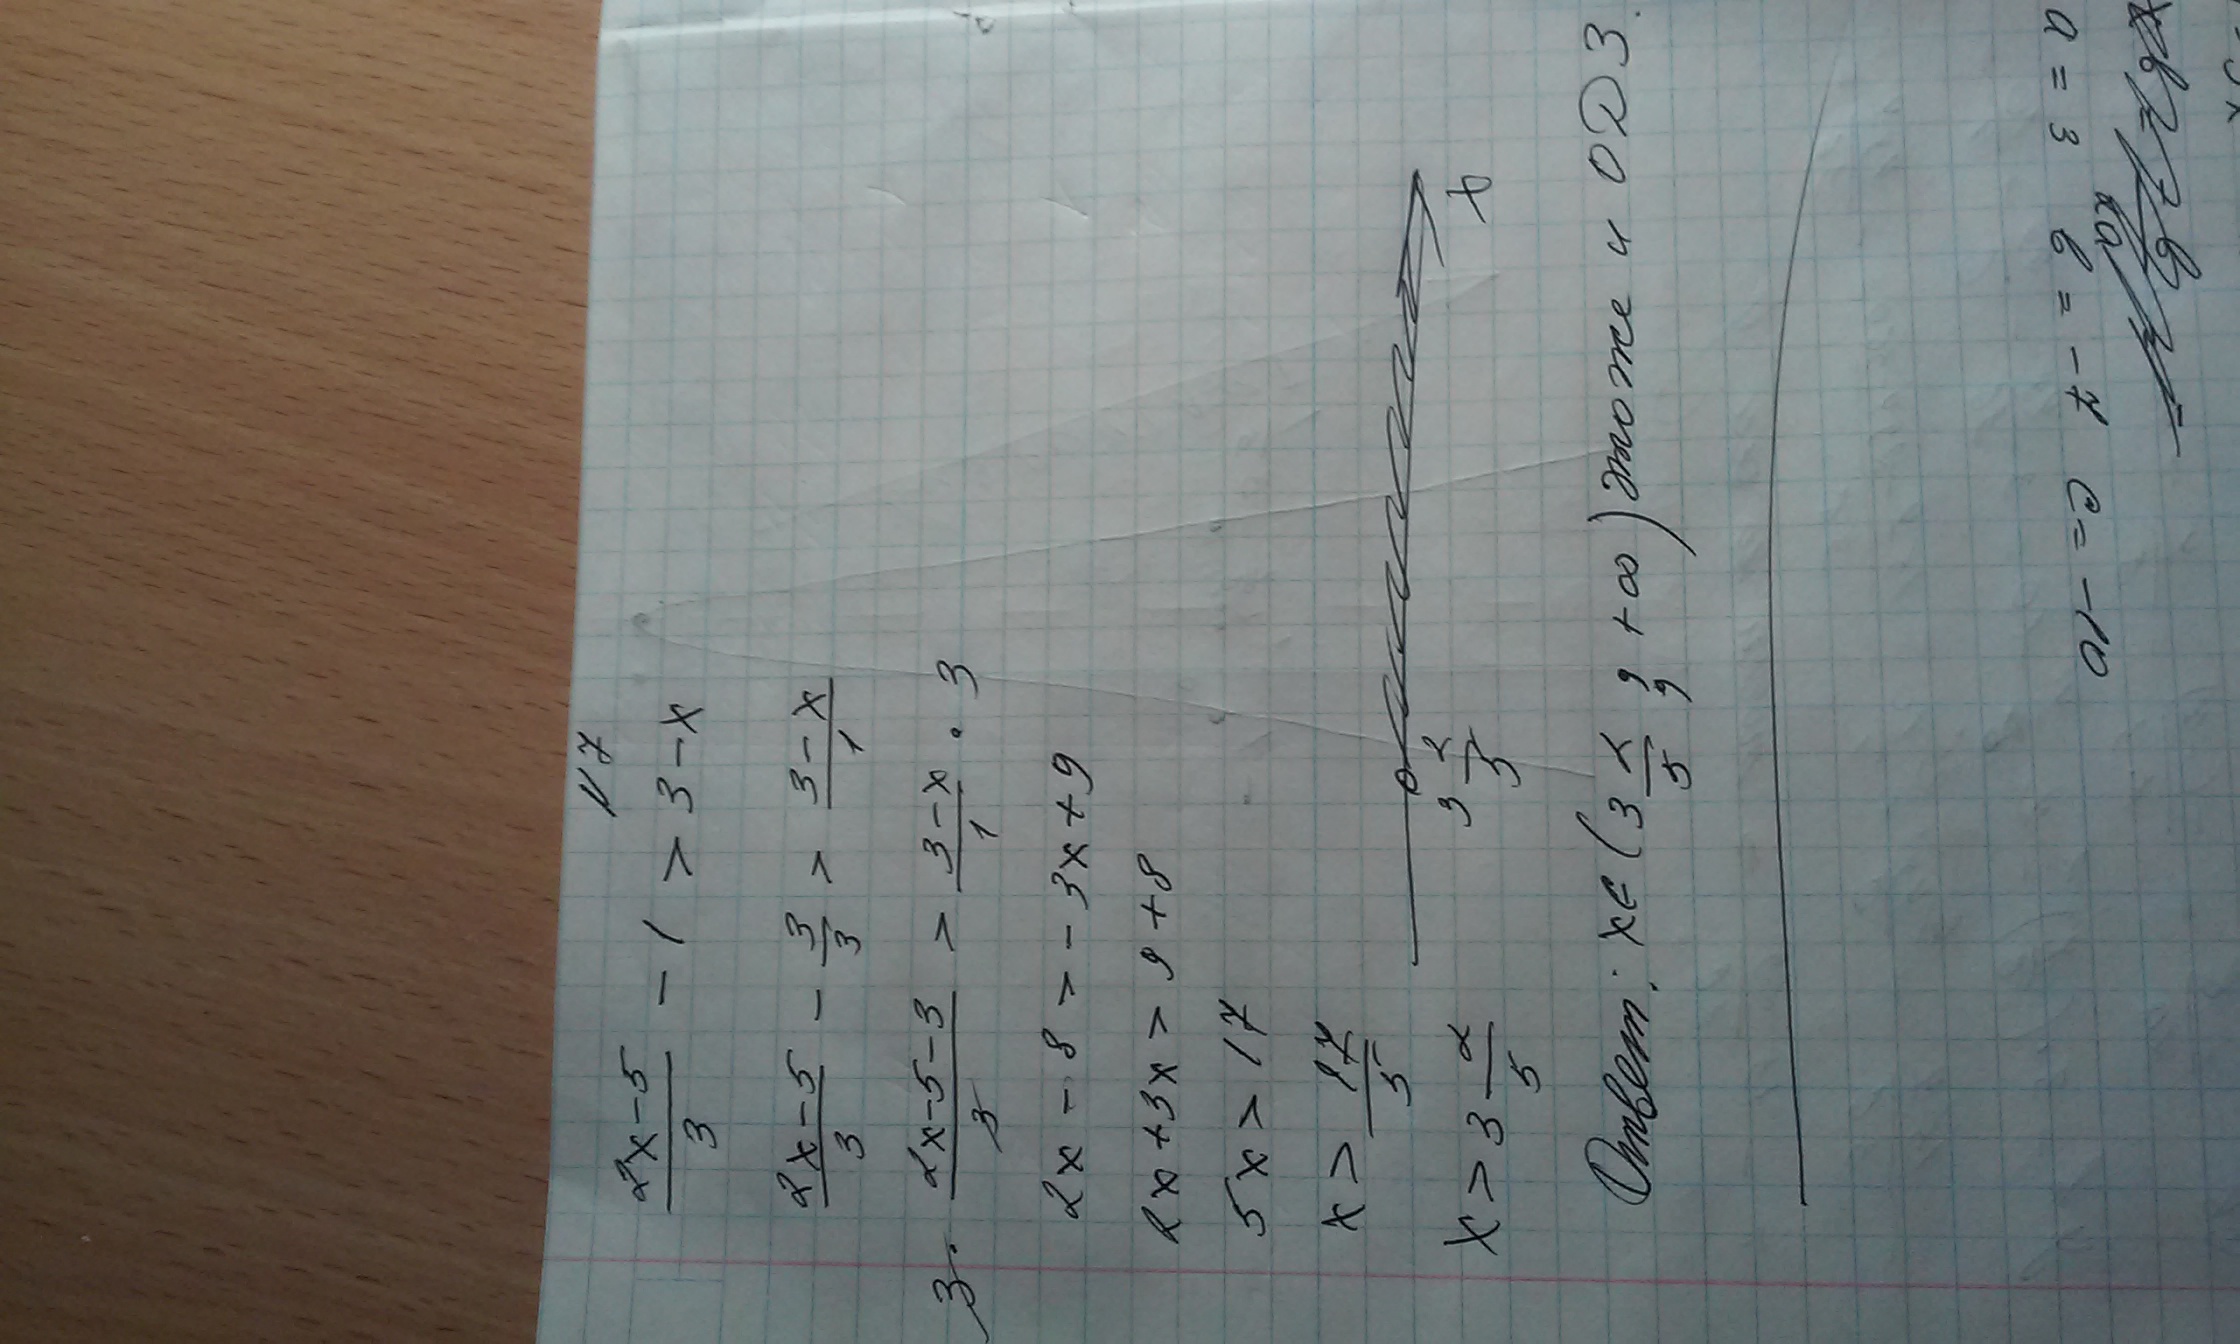 N7
(2x-5)/3 - 1 > 3-x
(2x-5)/3 - 3/3 > (3-x)/1
3· (2x-5-3)/3 > (3-x)/1 · 3
2x-8 > -3x+9
2x+3x > 9+8
5x > 17
x > 17/5
x > 3 2/5
3 2/5 x
Ответ: x∈(3 2/5 ; +∞) тоже и ОДЗ.
a = 3 в = -7 c = -10